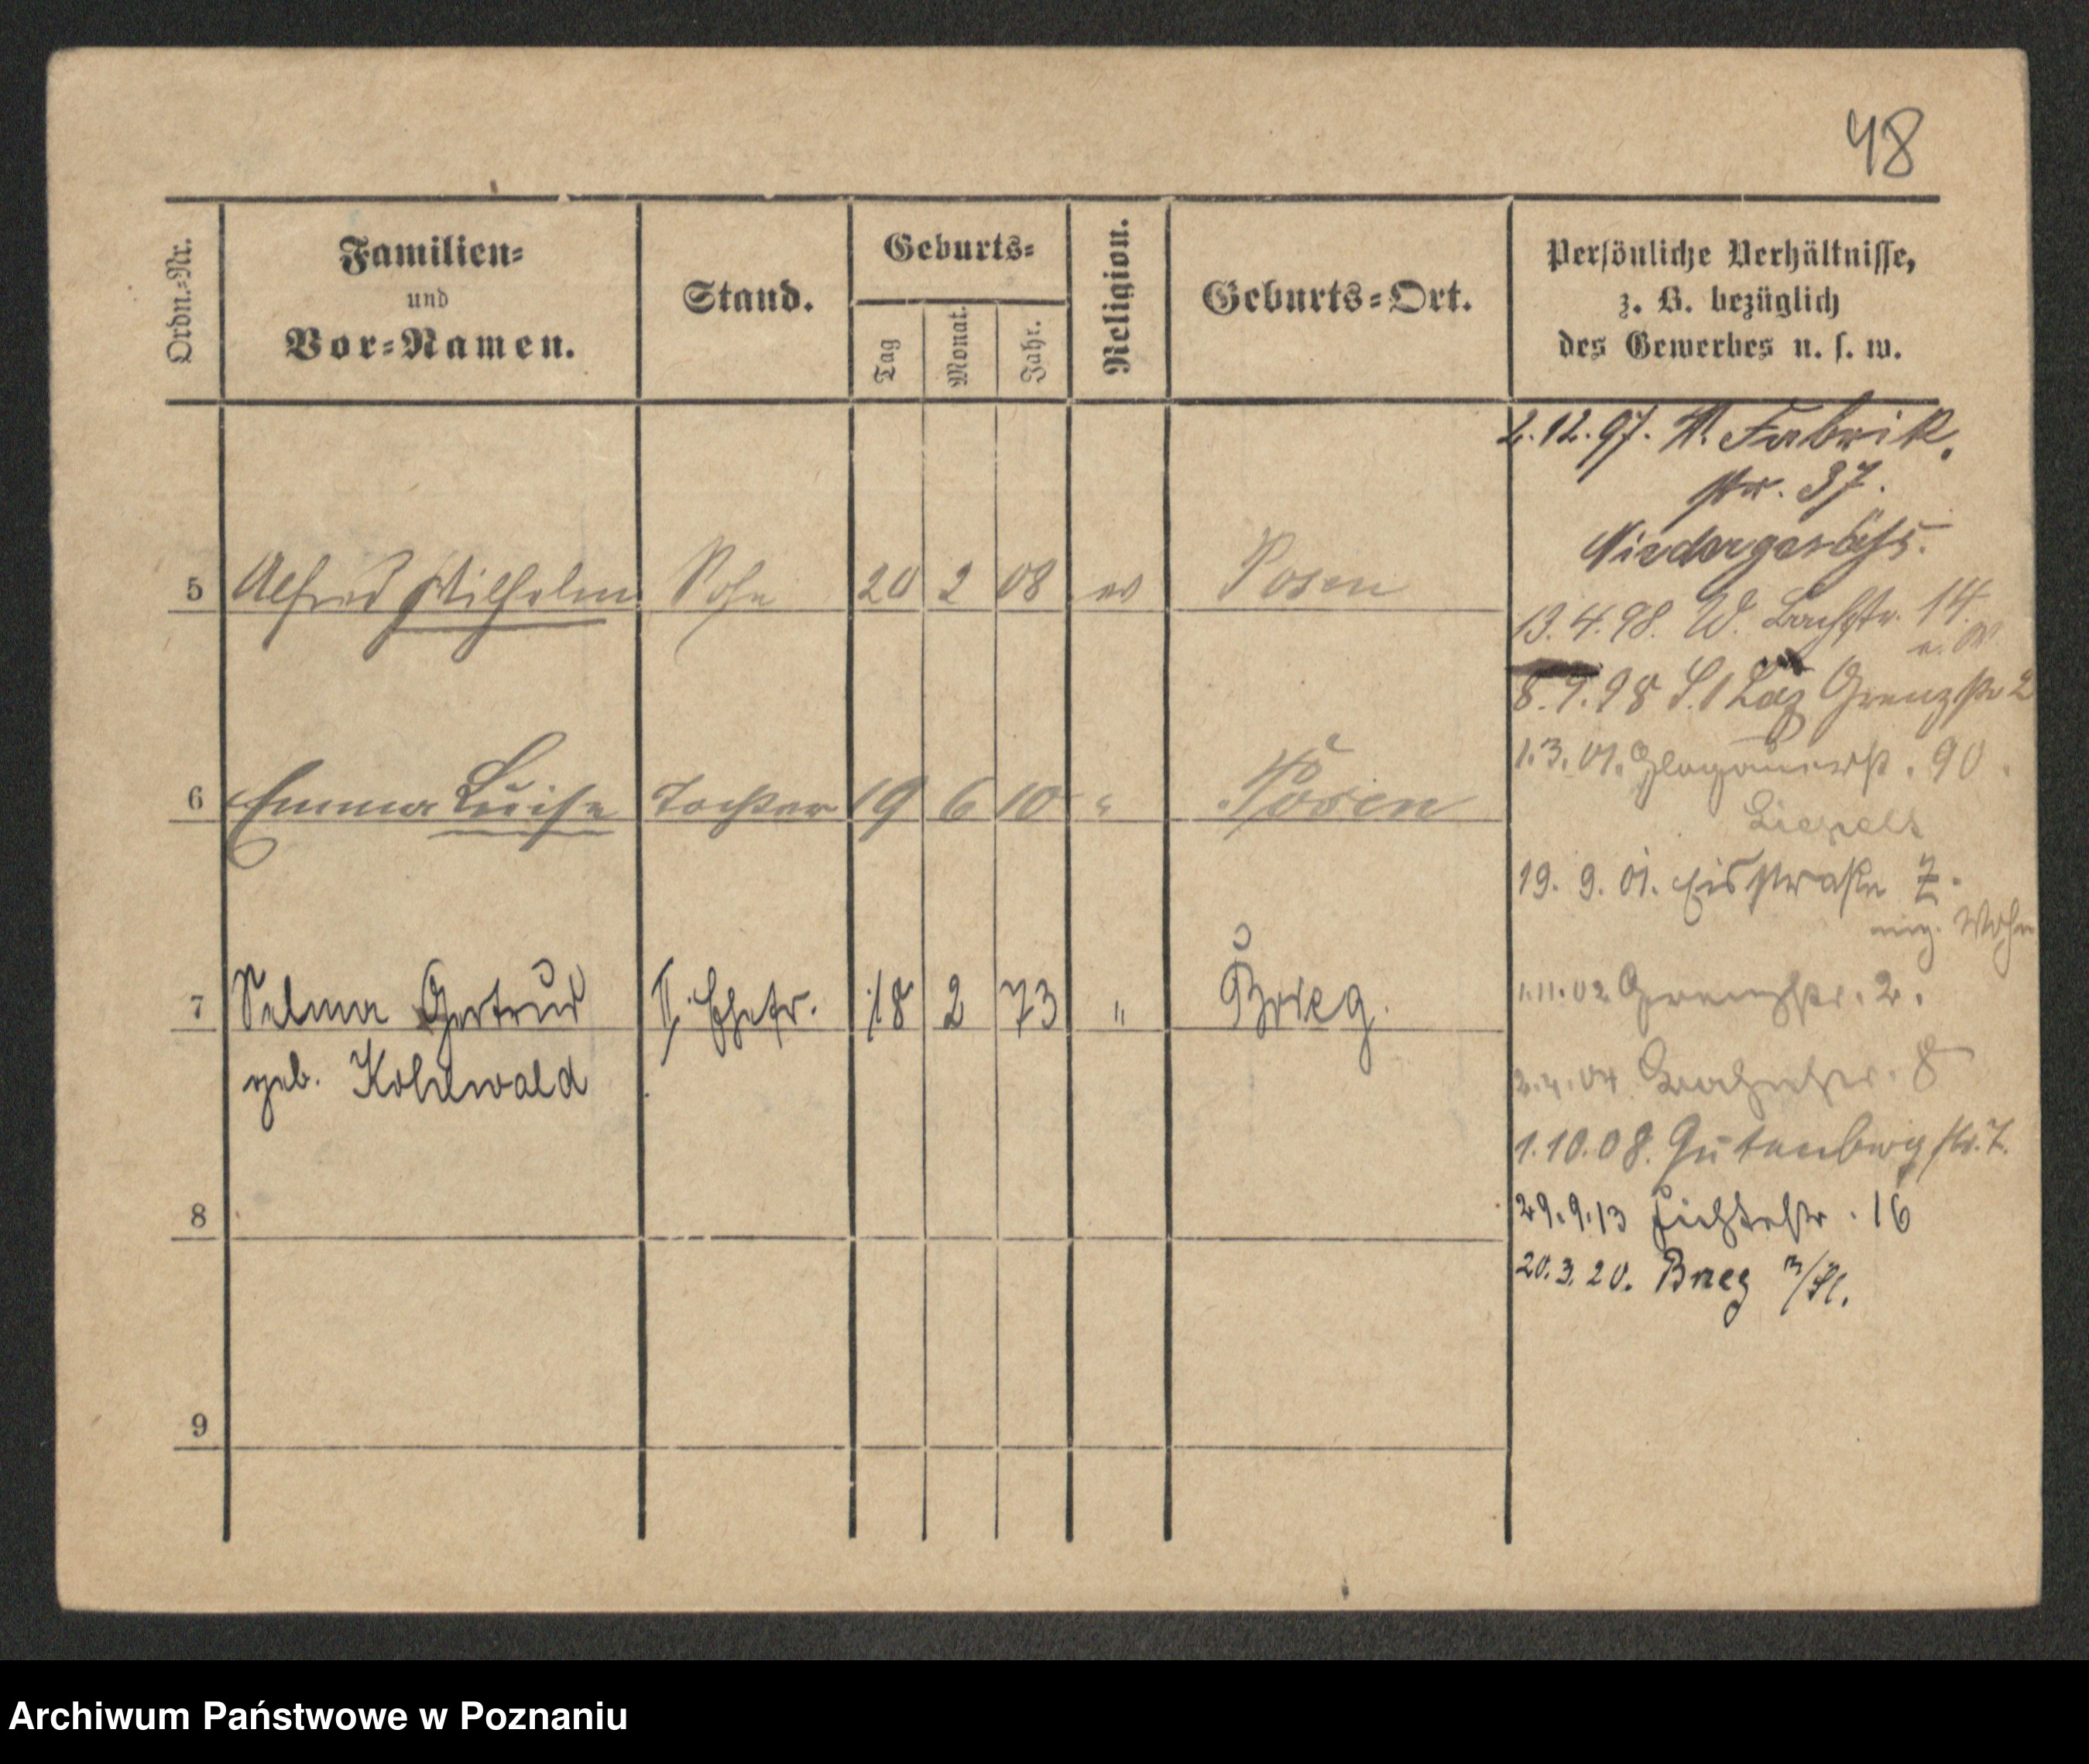 48
Ordn.-Nr.
Familien-
und
Vor-Namen.
Stand.
Geburts-
Tag
Monat.
Jahr.
Religion.
Geburts-Ort.
Persönliche Verhältnisse,
z. B. bezüglich
des Gewerbes u. s. w.
5 Alfred Wilhelm Sohn 20 2 08 ev Posen
6 Emma Luise Tochter 19 6 10 " Posen
7 Selma Gertrud II. Ehefr. 18 2 73 " Brieg.
geb. Kohlwald
8
9
2.12.97. W. Fabrik
str. 37.
13.4.98. W. Bachstr. 14.
8.9.98 St Laz Grenzstr 2
1.3.01. Glogauerstr. 90.
19. 9. 01. Eisstraße 7.
1.11.02 Grenzstr. 2.
2.4.04 8
1.10.08. Gutenbergstr. 7.
29.9.13 Fichtestr. 16
20.3.20. Brieg
Archiwum Państwowe w Poznaniu